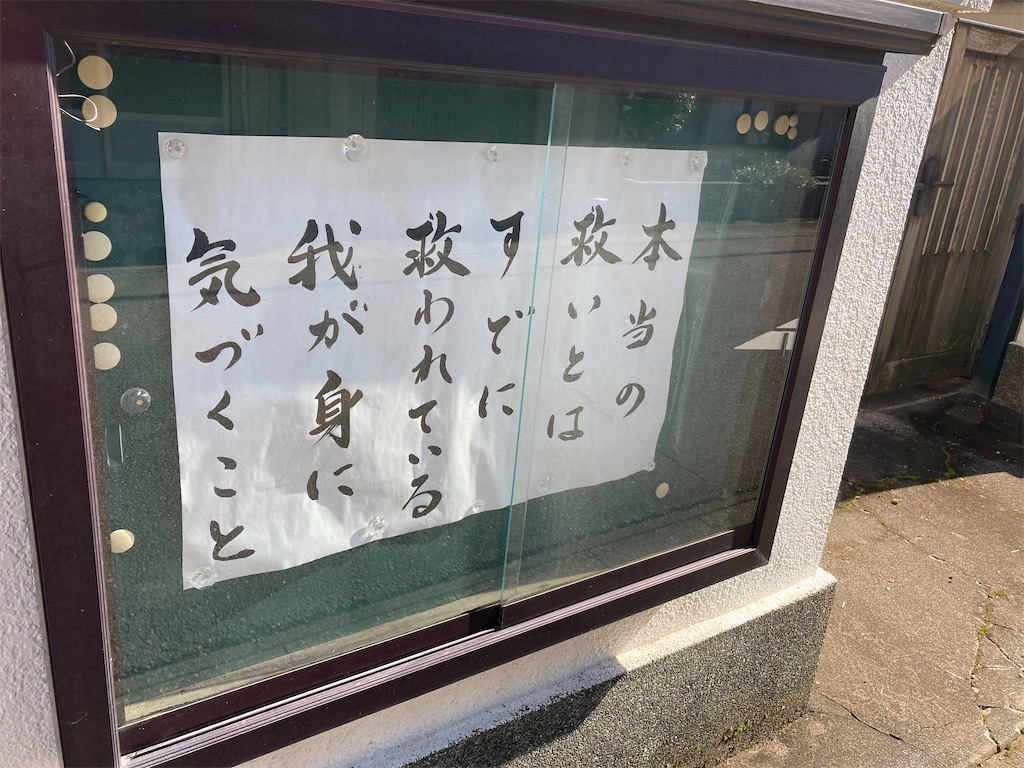 本当の
救いとは
すでに
救われている
我が身に
気づくこと